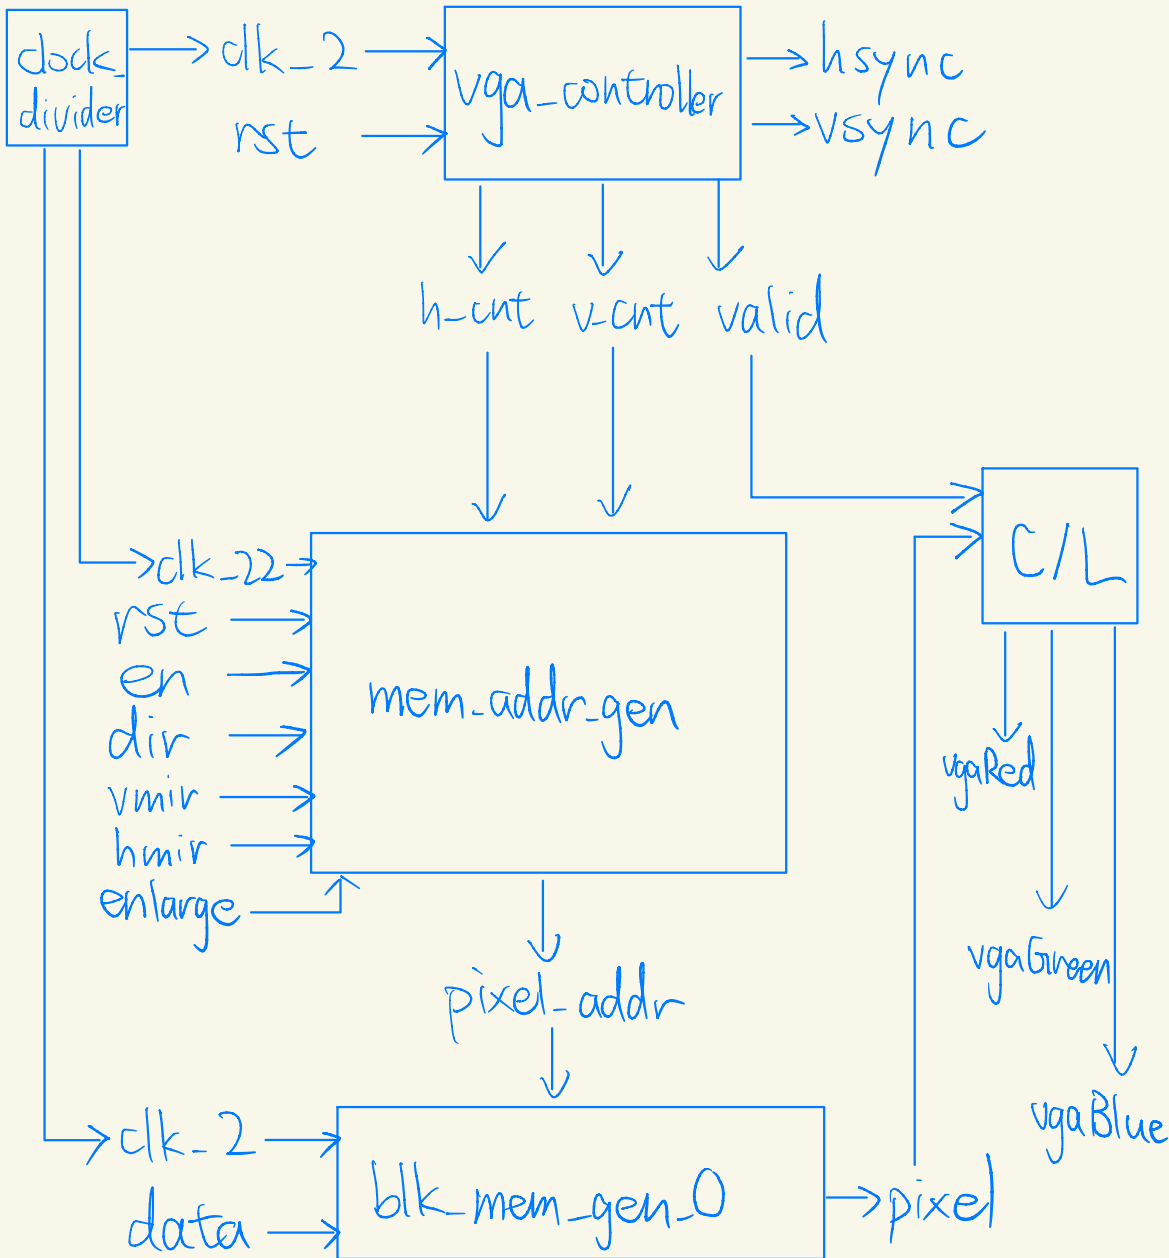 clock_
divider
clk_2
rst
vga_controller
hsync
vsync
h_cnt
v_cnt
valid
C/L
clk_22
rst
en
dir
vmir
hmir
enlarge
mem_addr_gen
vgaRed
vgaGreen
vgaBlue
pixel_addr
clk_2
data
blk_mem_gen_0
pixel